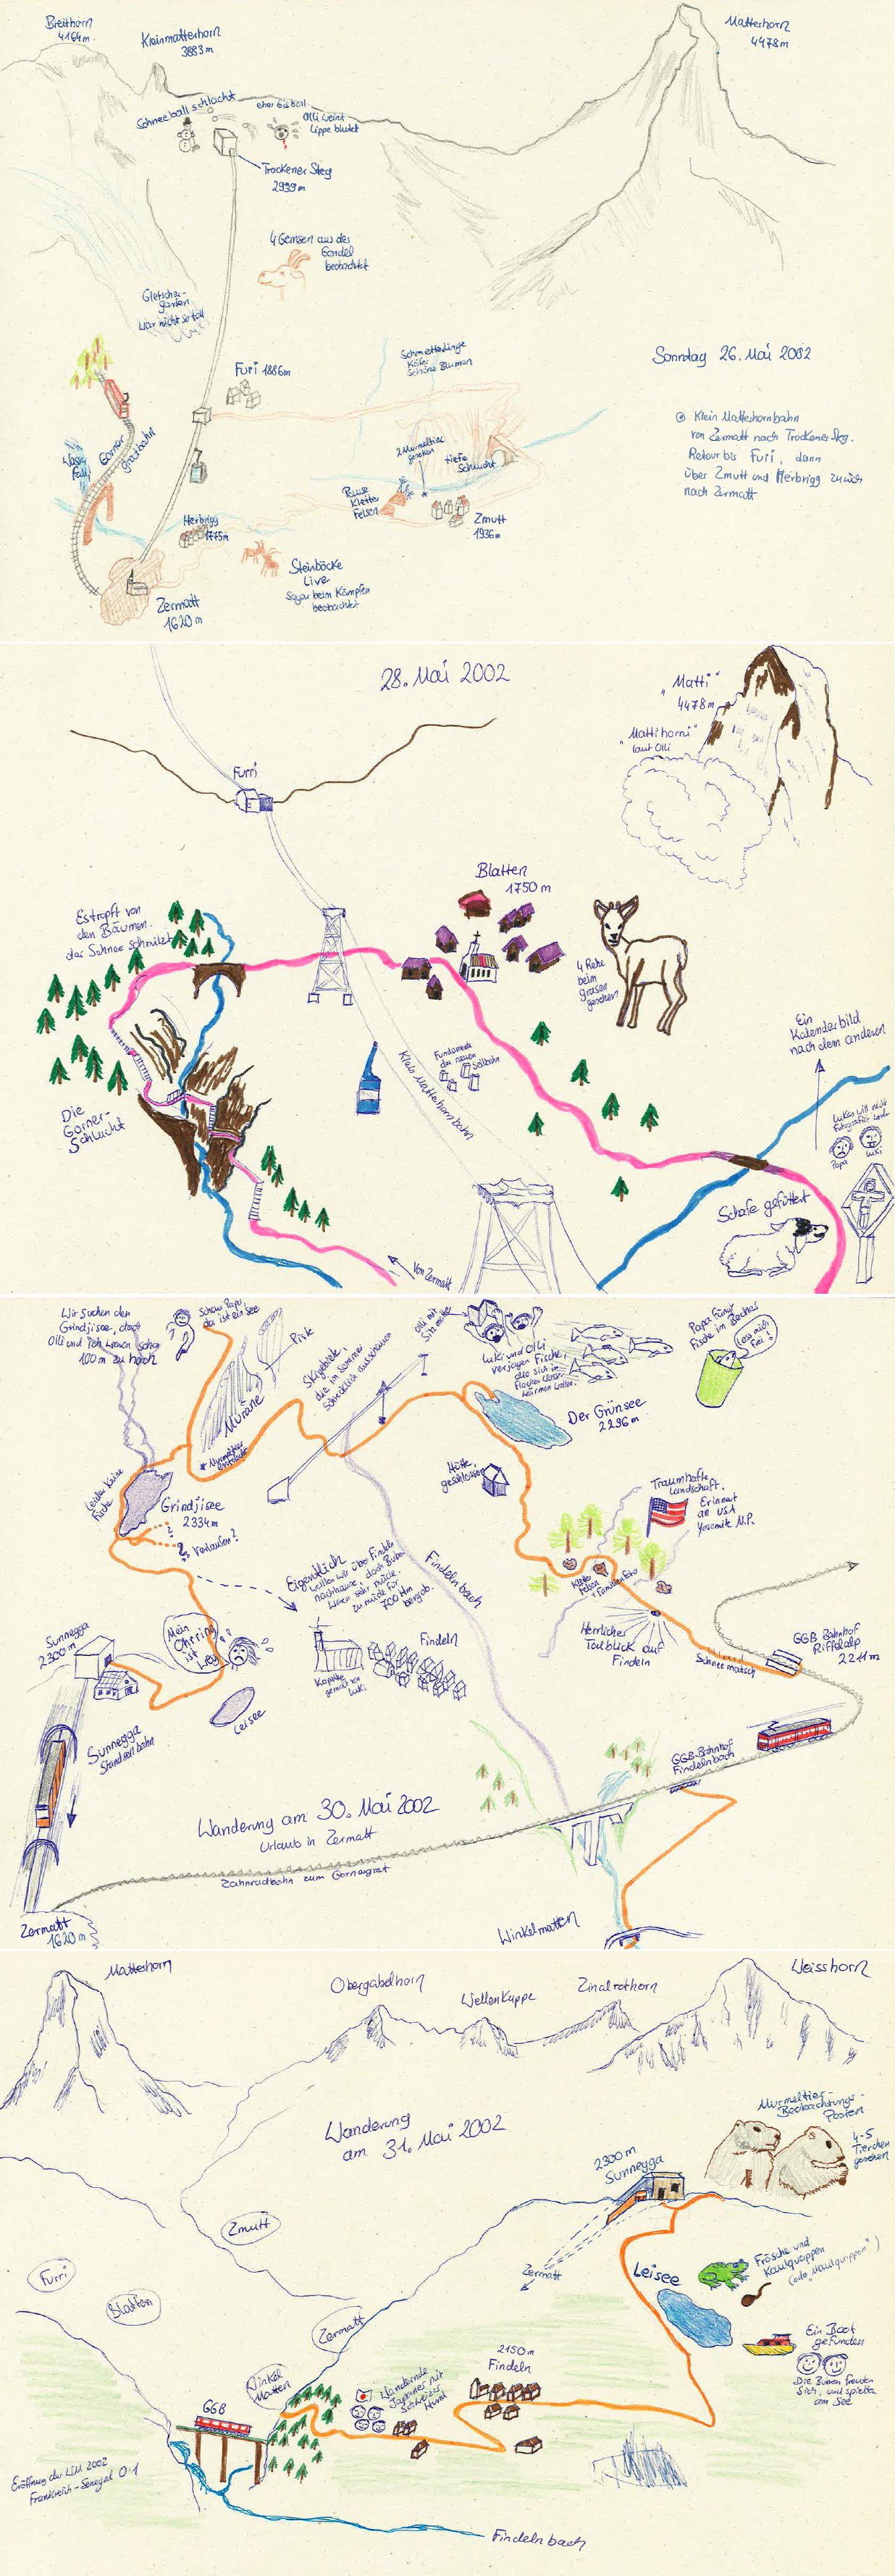 Breithorn
4164m.
Kleinmatterhorn
3883 m
Matterhorn
4478m
Schneeballschlacht
eher Eisball
Olli weint
Lippe blutet
Trockener Steg
2939 m
4 Gemsen aus der
Gondel
beobachtet
Gletscher-
garten
War nicht so toll
Furi 1886m
Schmetterlinge
Käfer
Schöne Blumen
Sonntag 26. Mai 2002
Klein Matterhornbahn
von Zermatt nach Trockener Steg.
Retour bis Furi, dann
über Zmutt und Herbrigg zurück
nach Zermatt
Wasser
Fall
Gorner
gratbahn
2 Murmeltiere
gesehen
tiefe
Schlucht
Pause
Kletter
Felsen
Zmutt
1936m
Herbrigg
1775m
Steinböcke
Live
Sogar beim Kämpfen
beobachtet
Zermatt
1620 m
28. Mai 2002
"Matti"
4478m
"Mattihorni"
laut Olli
Furri
Blatten
1750 m
Es tropft von
den Bäumen.
der Schnee schmilzt
4 Rehe
beim
grasen
gesehen
Ein
Kalenderbild
nach dem anderen
Fundamente
der neuen
Seilbahn
Klein Matterhornbahn
Die
Gorner-
Schlucht
Lukas will nicht
Fotografiert werden
Papa
Luki
Schafe gefüttert
Von Zermatt
Wir suchen den
Grindjisee, doch
Olli und ich waren schon
100 m zu hoch
Schau Papa,
da ist ein See
Muräne
Piste
Skigebiete,
die im Sommer
schrecklich ausschauen
Olli mit
Sitz
Luki und Olli
verjagen Fische,
die sich im
flachen Wasser
wärmen wollen.
Papa fängt
Fische im Becher
Lass mich
frei!
Der Grünsee
2296 m
Murmeltier
entdeckt
Leider keine
Fische
Grindjisee
2334 m
Verlaufen?
Hütte
geschlossen
Traumhafte
Landschaft.
Erinnert
an USA
Yosemite N.P.
Eigentlich
wollten wir über Findeln
nachhause, doch Buben
waren sehr müde.
zu müde für
700 Hm
bergab.
Findelnbach
Kletter
Felsen
+ Familienfoto
Herrlicher
Talblick auf
Findeln
Schneematsch
GGB Bahnhof
Riffelalp
2211 m
Sunnegga
2300 m
Mein
Ohrring
ist
weg!
Leisee
Kapelle
gemalt von
Luki
Findeln
Sunnegga
Standseilbahn
GGB-Bahnhof
Findelnbach
Wanderung am 30. Mai 2002
Urlaub in Zermatt
Zahnradbahn zum Gornergrat
Zermatt
1620 m
Winkelmatten
Matterhorn
Obergabelhorn
Wellenkuppe
Zinalrothorn
Weisshorn
Wanderung
am 31. Mai 2002
Murmeltier-
Beobachtungs-
Posten
4-5
Tierchen
gesehen
2300 m
Sunnegga
Zmutt
Zermatt
Furri
Blatten
Leisee
Frösche und
Kaulquappen
(oder "Maulquappen")
Zermatt
Ein Boot
gefunden
Die Buben freuten
sich, und spielten
am See
Winkel
Matten
2150 m
Findeln
Wandernde
Japaner mit
Schweizer
Hund
GGB
Eröffnung der WM 2002
Frankreich - Senegal 0:1
Findelnbach